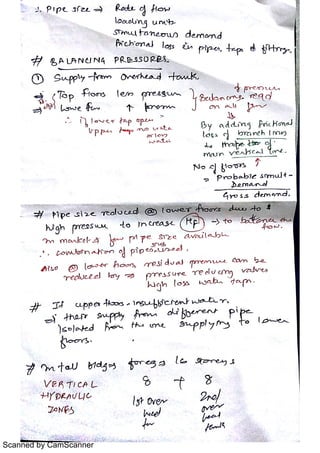 ∴ Pipe size → Rate of flow
loading units
simultaneous demand
frictional loss in pipes, taps & fittings.
# BALANCING PRESSURES.
① Supply from Overhead tank.
⇒ Top floors less pressure
Lowe flr ↑ pressure
Balancing reqd
on all
∴ if lower tap open
upper no wate
or less
water
By adding frictional
loss of branch lines
to
main vertical line.
No of floors ↑
⇒ Probable simult-
Demand
Gross demand.
# Pipe size reduced @ lower floors due to ↑
high pressure to increase (Hf) → to balance the
flow.
in market few pipe size available
∴ combination of pipe size used.
Also @ lower floors, residual pressure can be
reduced by ⇒ pressure reducing valves
high loss water taps.
# If upper floors - insufficient water.
⇒ their supply from different pipe
isolated from the one supplying to lower
floors.
# In tall bldgs for eg ⇒ 16 storeys
VERTICAL
HYDRAULIC
ZONES
8 + 8
1st over
2nd
over
head
tank
Scanned by CamScanner